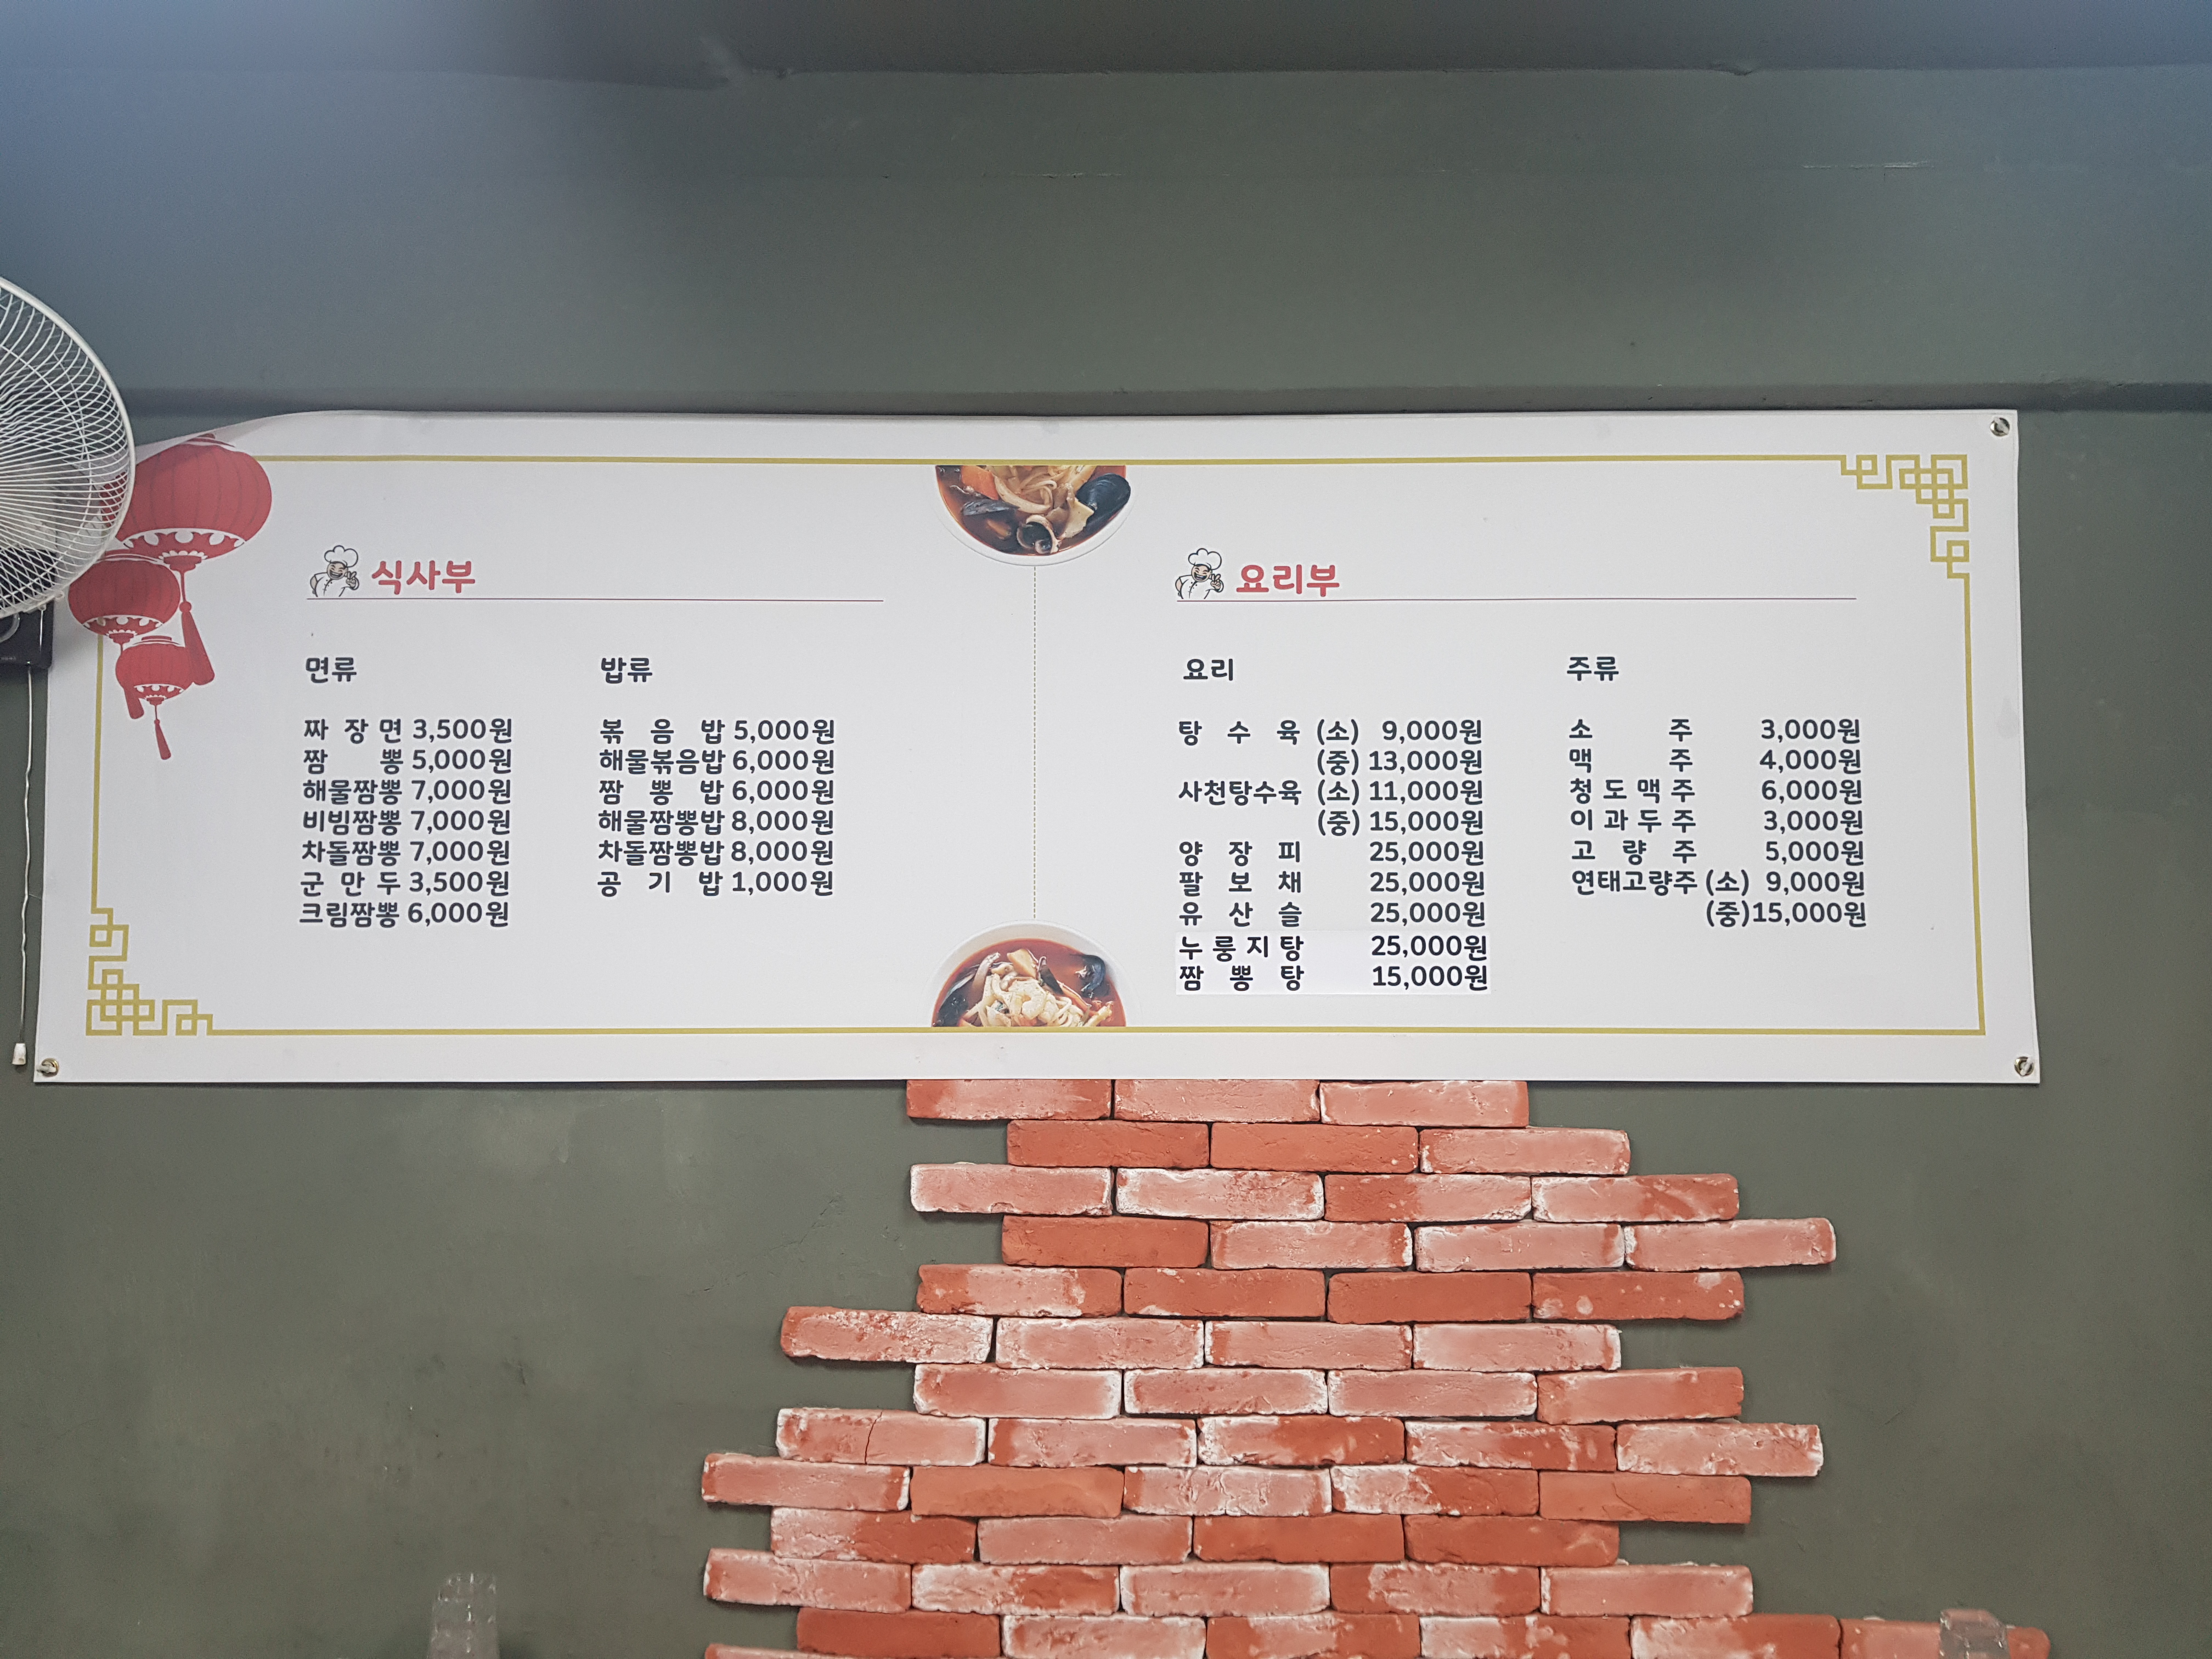 식사부
면류
짜장면 3,500원
짬뽕 5,000원
해물짬뽕 7,000원
비빔짬뽕 7,000원
차돌짬뽕 7,000원
군만두 3,500원
크림짬뽕 6,000원
밥류
볶음밥 5,000원
해물볶음밥 6,000원
짬뽕밥 6,000원
해물짬뽕밥 8,000원
차돌짬뽕밥 8,000원
공기밥 1,000원
요리부
요리
탕수육 (소) 9,000원
(중) 13,000원
사천탕수육 (소) 11,000원
(중) 15,000원
양장피 25,000원
팔보채 25,000원
유산슬 25,000원
누룽지탕 25,000원
짬뽕탕 15,000원
주류
소주 3,000원
맥주 4,000원
청도맥주 6,000원
이과두주 3,000원
고량주 5,000원
연태고량주 (소) 9,000원
(중)15,000원